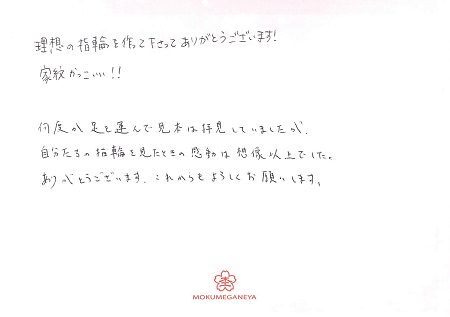 理想の指輪を作って下さってありがとうございます!
家紋かっこいい!!
何度か足を運んで見本は拝見していましたが、
自分たちの指輪を見たときの感動は想像以上でした。
ありがとうございます。これからもよろしくお願いします。
MOKUMEGANEYA